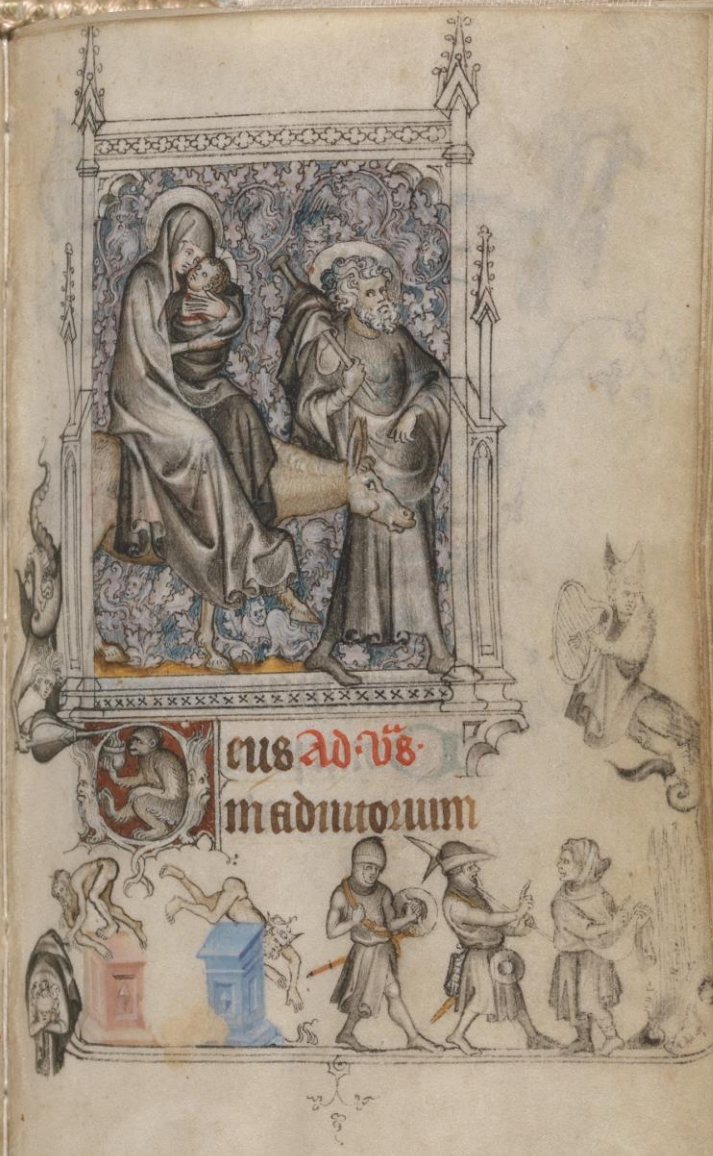 Deus Ad·Vs̄·
in adiutorium